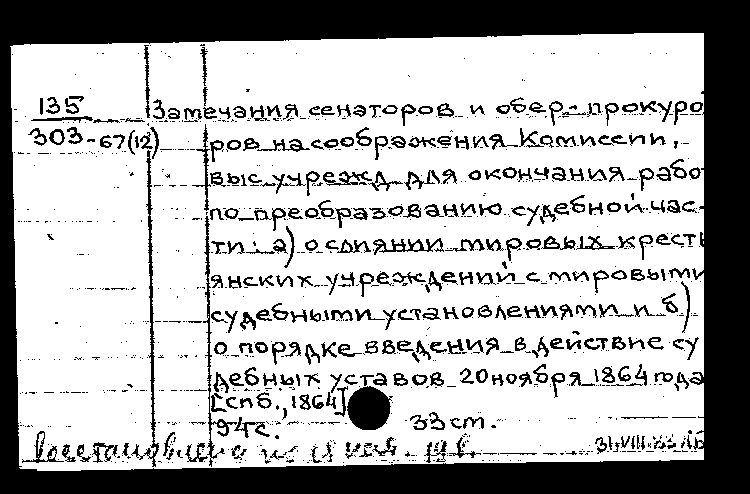 135
303-67(12)
Замечания сенаторов и обер-прокуро
ров на соображения Комиссии,
выс. учрежд. для окончания работ
по преобразованию судебной час-
ти: а) о слиянии мировых кресть
янских учреждений с мировыми
судебными установлениями и б)
о порядке введения в действие су
дебных уставов 20 ноября 1864 года
[Спб., 1864]
94с. 33 см.
Восстановлено
31.VIII.83